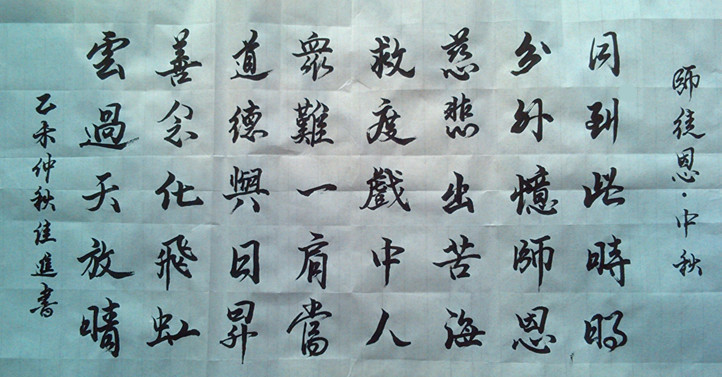 師徒恩·中秋
同到此時明
分外憶師恩
慈悲出苦海
救度戲中人
眾難一肩當
道德與日昇
善念化飛虹
雲過天放晴
乙未仲秋佳進書